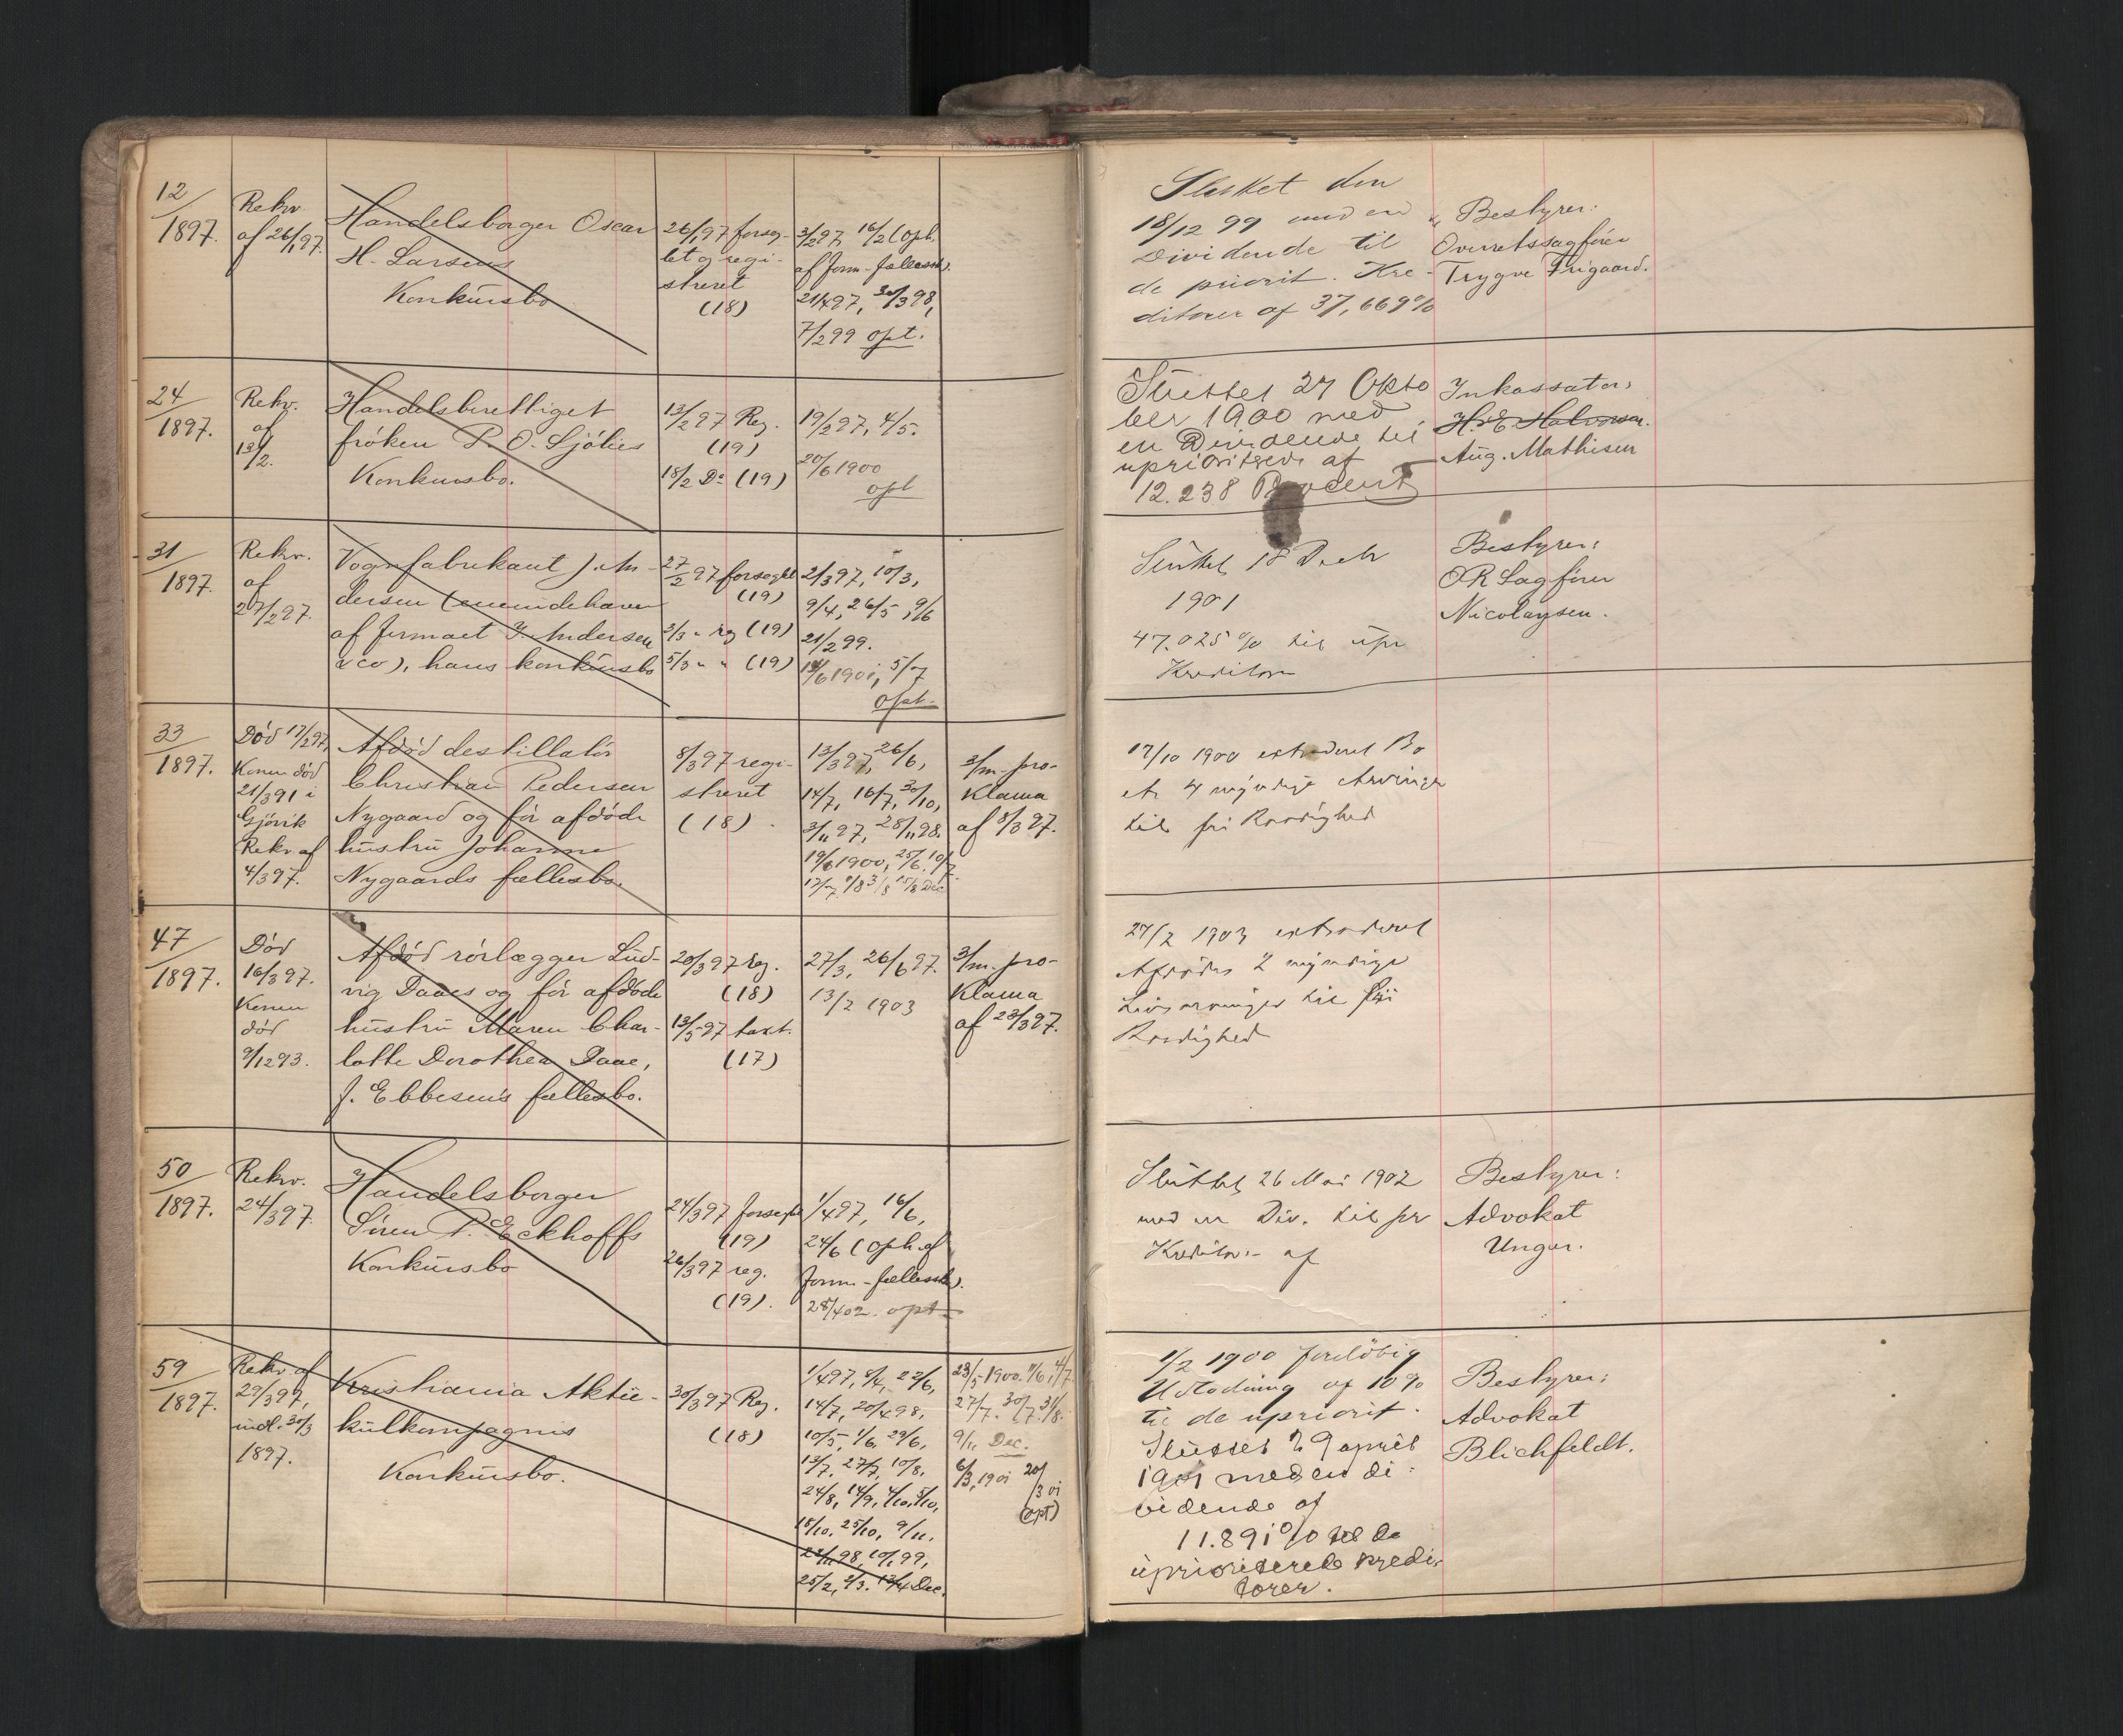 12/1897.
Rekv.
af 26/1 97.
Handelsborger Oscar
H. Larsens
Konkursbo
26/1 97 forseg-
let og regi-
streret
(18)
3/2 97, 16/2 (Oph.
af form-fællessk).
21/4 97, 30/3 98,
7/2 99 opt.
Sluttet den
18/12 99 med en
Dividende til
de priorit. Kre-
ditorer af 37,669%
Bestyrer:
Overretssagfører
Trygve Frigaard.
24/1897.
Rekv.
af
13/2.
Handelsberettiget
frøken P. O. Sjölies
Konkursbo.
13/2 97 Reg.
(19)
18/2 Do (19)
19/2 97, 4/5.
20/6 1900
opt
Sluttet 27 Okto
ber 1900 med
en Dividende til
uprioriterede af
12.238 Procent
Inkassator
H. E. Halvorsen.
Aug. Mathisen
31/1897.
Rekv.
af
27/2 97.
Vognfabrikant J. An-
dersen (eneindehaver
af firmaet J. Andersen
& co), hans konkursbo
27/2 97 forseglet
(19)
2/3 " reg (19)
5/3 " " (19)
2/3 97, 10/3,
9/4, 26/5, 9/6
21/2 99.
14/6 1901, 5/7
opt.
Sluttet 18 Decbr
1901
47.025 % til upr
Kreditorer
Bestyrer:
OR Sagfører
Nicolaysen.
33/1897.
Död 17/2 97,
Konen död
21/3 91 i
Gjövik
Rekv af
4/3 97.
Afdöd destillatör
Christian Pedersen
Nygaard og før afdöde
hustru Johanne
Nygaards fællesbo.
8/3 97 regi-
streret
(18)
13/3 97, 26/6,
14/7, 16/7, 30/10,
3/11 97, 28/11 98.
19/6 1900, 25/6. 10/7.
3/m. pro-
klama
af 8/3 97.
17/10 1900 extraderet Bo
et 4 myndige Arvinger
til fri Raadighed
47/1897.
Död
16/3 97.
Konen
död
9/12 93.
Afdöd rörlægger Lud-
vig Daaes og før afdöde
hustru Maren Char-
lotte Dorothea Daae,
f. Ebbesens fællesbo.
20/3 97 reg.
(18)
13/5 97 taxt.
(17)
27/3, 26/6 97.
13/2 1903
3/m. pro-
klama
af 23/3 97.
27/2 1903 extraderet
Afdødes 2 myndige
Livsarvinger til fri
Raadighed
50/1897.
Rekv.
24/3 97.
Handelsborger
Sören P. Eckhoffs
Konkursbo
24/3 97 forseglet
(19)
26/3 97 reg.
(19).
1/4 97, 16/6,
24/6 (Oph. af
form-fællessk).
28/4 02. opt
Sluttet 26 Mai 1902
med en Div. til pr
Kreditorer af
Bestyrer:
Advokat
Unger.
59/1897.
Rekv. af
29/3 97,
indl. 30/3
1897.
Kristiania Aktie-
kulkompagnis
Konkursbo.
30/3 97 Reg.
(18)
1/4 97, 8/4, 22/6,
14/7, 20/4 98,
10/5, 1/6, 29/6,
13/7, 27/7, 10/8,
24/8, 14/9, 4/10, 5/10,
18/10. 25/10, 9/11.
22/11 98, 10/1 99,
25/2, 2/3. 13/4 Dec.
23/5 1900. 11/6, 4/7
27/7. 30/7. 31/8.
9/11 Dec.
6/3, 1901 20/3 01
(opt)
1/2 1900 foreløbig
Udlodning af 10%
til de upriorit.
Sluttet 29 april
1901 med en di-
vidende af
11.891% til de
uprioriterede kredi-
torer.
Bestyrer:
Advokat
Blichfeldt.